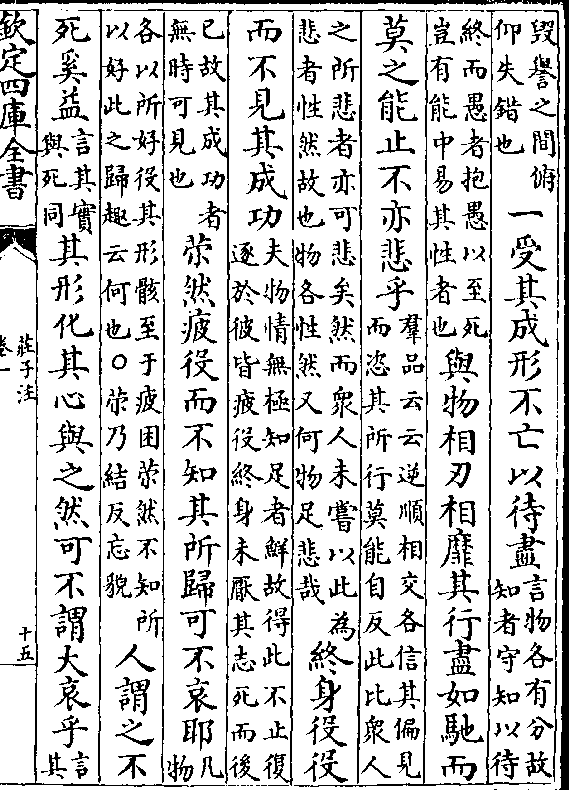 毀譽之間俯仰失錯也一受其成形不亡以待盡言物各有分故知者守知以待
終而愚者抱愚以至死豈有能中易其性者也與物相刃相靡其行盡如馳而
莫之能止不亦悲乎羣品云云逆順相交各信其偏見而恣其所行莫能自反此比衆人
之所悲者亦可悲矣然而衆人未嘗以此為悲者性然故也物各性然又何物足悲哉終身役役
而不見其成功夫物情無極知足者鮮故得此不止復逐於彼皆疲役終身未厭其志死而後
已故其成功者無時可見也苶然疲役而不知其所歸可不哀耶凡物
各以所好役其形骸至于疲困苶然不知所以好此之歸趣云何也○苶乃結反忘貌人謂之不
死奚益言其實與死同其形化其心與之然可不謂大哀乎言其
欽定四庫全書
莊子注
卷一
十五